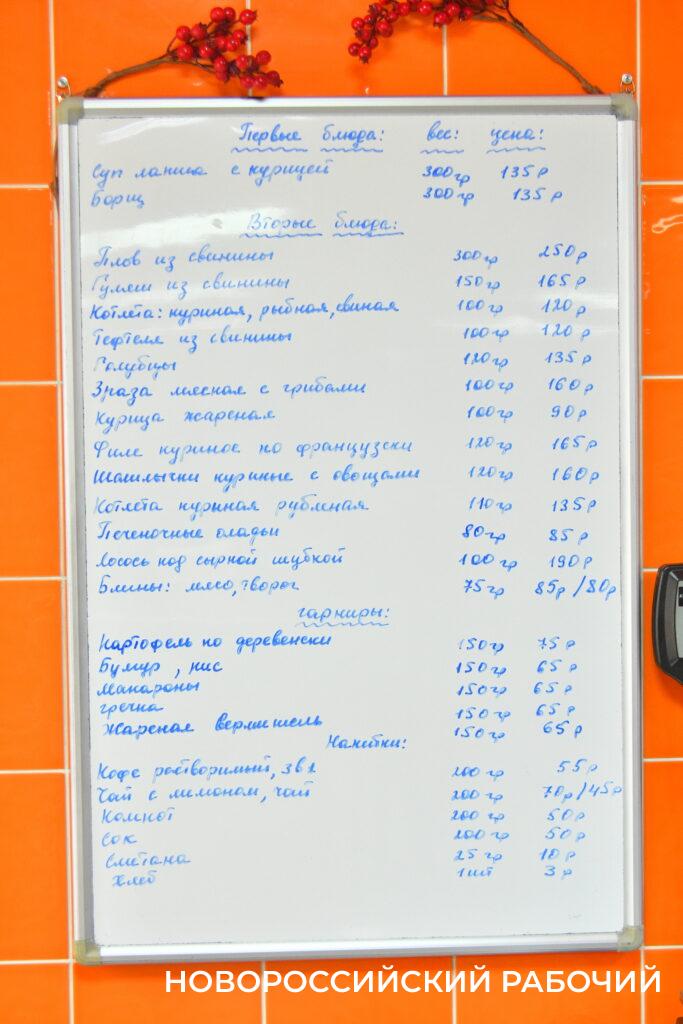 Первые блюда: вес: цена:
Суп лапша с курицей 300гр 135р
Борщ 300гр 135р
Вторые блюда:
Плов из свинины 300гр 250р
Гуляш из свинины 150гр 165р
Котлета: куриная, рыбная, свиная 100гр 120р
Тефтеля из свинины 100гр 120р
Голубцы 120гр 135р
Зраза мясная с грибами 100гр 160р
Курица жареная 100гр 90р
Филе куриное по французски 120гр 165р
Шашлычки куриные с овощами 120гр 160р
Котлета куриная рубленая 110гр 135р
Печеночные оладьи 80гр 85р
Лосось под сырной шубкой 100гр 190р
Блины: мясо, творог 75гр 85р/80р
гарниры:
Картофель по деревенски 150гр 75р
Булгур, рис 150гр 65р
Макароны 150гр 65р
гречка 150гр 65р
Жареная вермишель 150гр 65р
Напитки:
Кофе растворимый, 3в1 200гр 55р
Чай с лимоном, чай 200гр 70р/45р
Компот 200гр 50р
Сок 200гр 50р
Сметана 25гр 10р
Хлеб 1шт 3р
НОВОРОССИЙСКИЙ РАБОЧИЙ